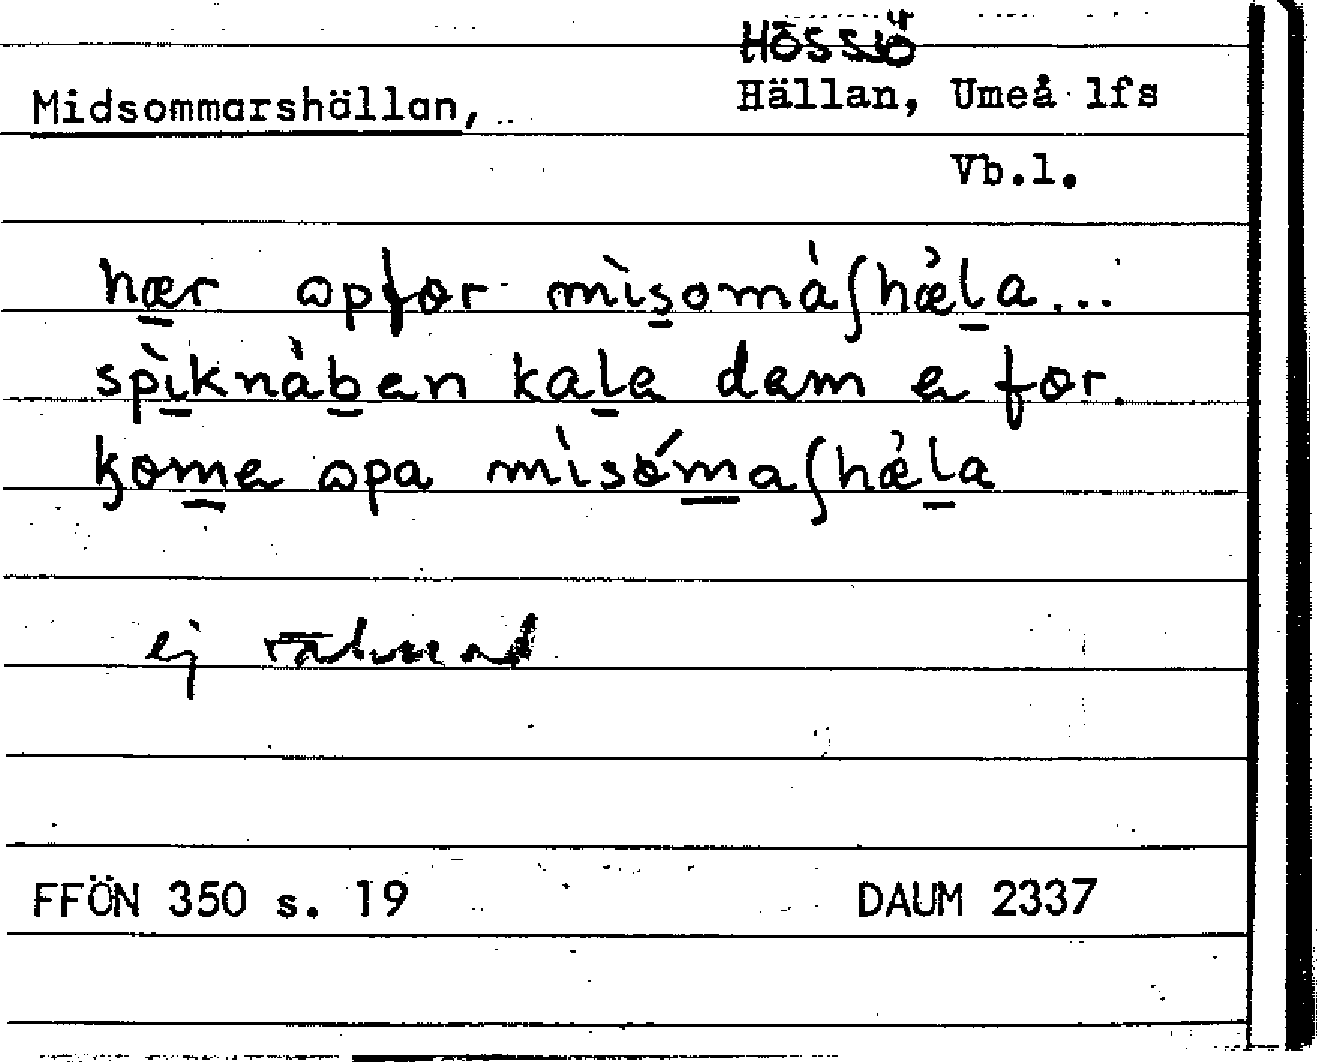 Hössjö
Midsommarshällan, Hällan, Umeå lfs
Vb.l.
hær ɷpfør mìsomàʃhæ̀la...
spìknàben kale dem e før.
kome ɷpa mìsómaʃhæ̀la
ej räknad
FFÖN 350 s. 19 DAUM 2337